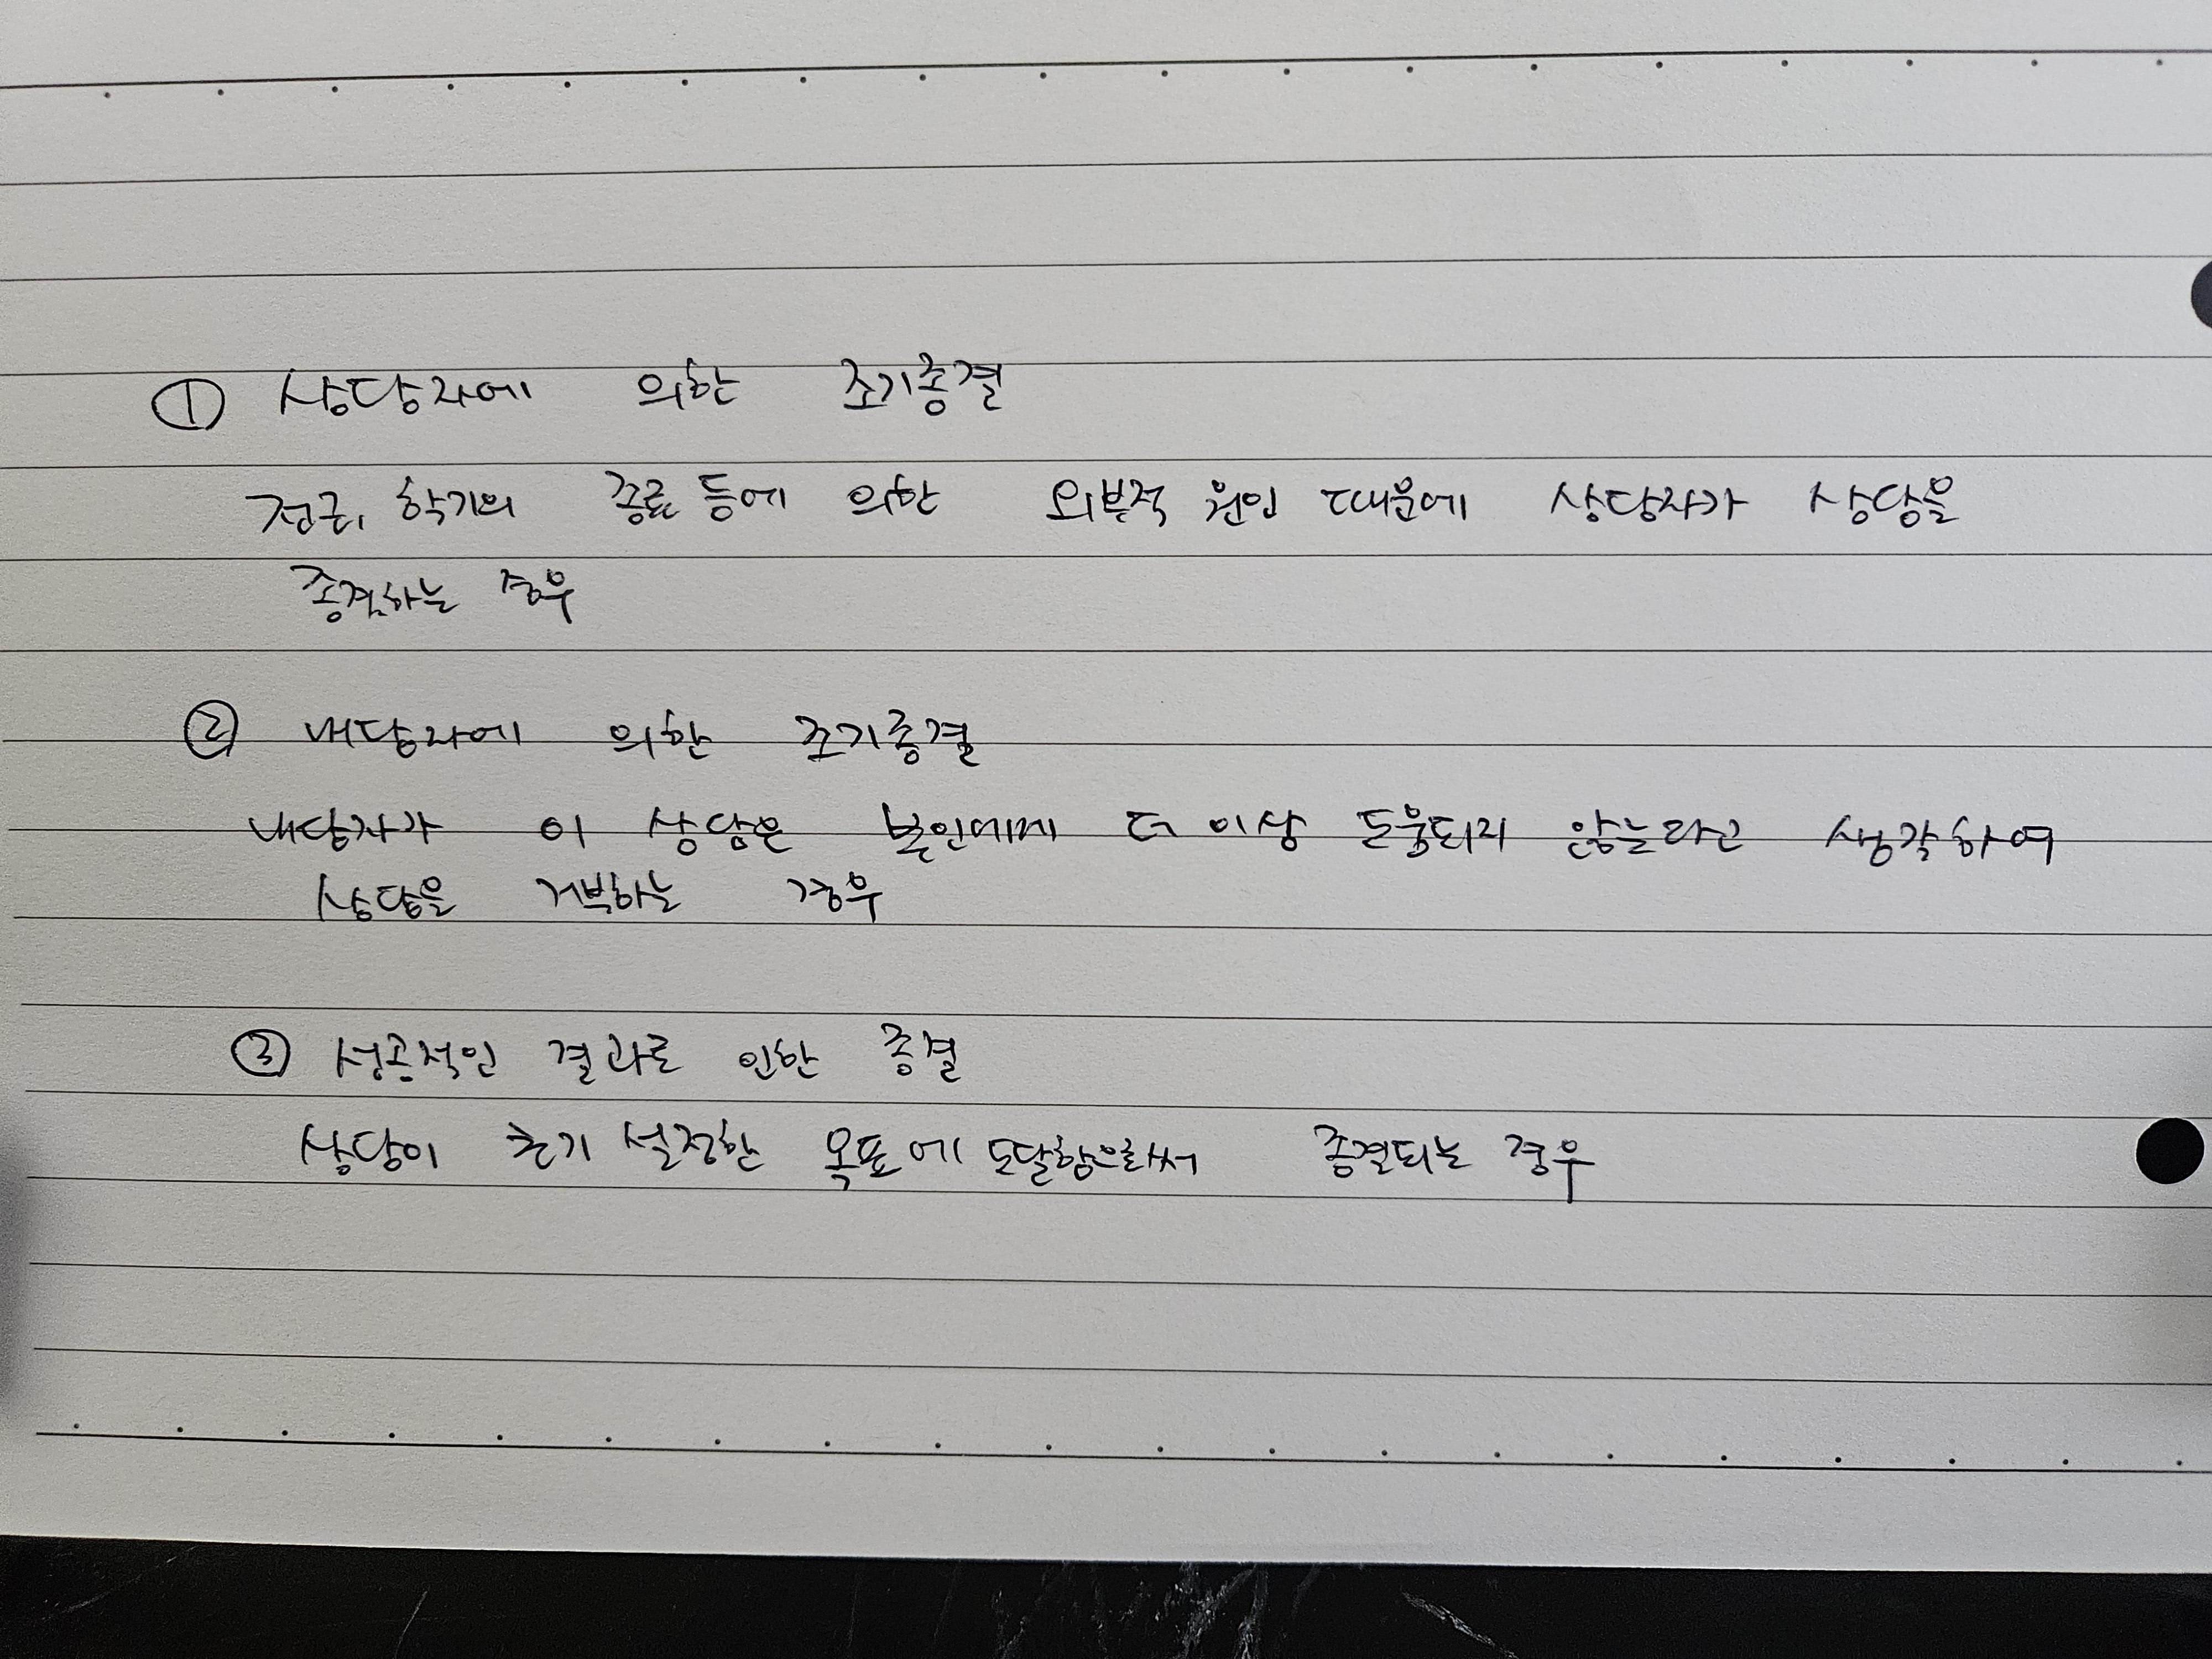 ① 상담자에 의한 조기종결
전근, 학기의 종료 등에 의한 외부적 원인 때문에 상담자가 상담을
종결하는 경우
② 내담자에 의한 조기종결
내담자가 이 상담은 본인에게 더 이상 도움되지 않는다고 생각하여
상담을 거부하는 경우
③ 성공적인 결과로 인한 종결
상담이 초기 설정한 목표에 도달함으로써 종결되는 경우